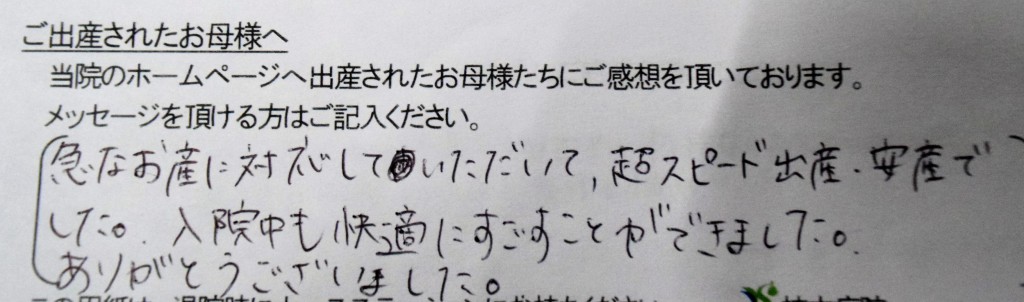 ご出産されたお母様へ
当院のホームページへ出産されたお母様たちにご感想を頂いております。
メッセージを頂ける方はご記入ください。
(急なお産に対応していただいて、超スピード出産・安産で)
した。入院中も快適にすごすことができました。
ありがとうございました。